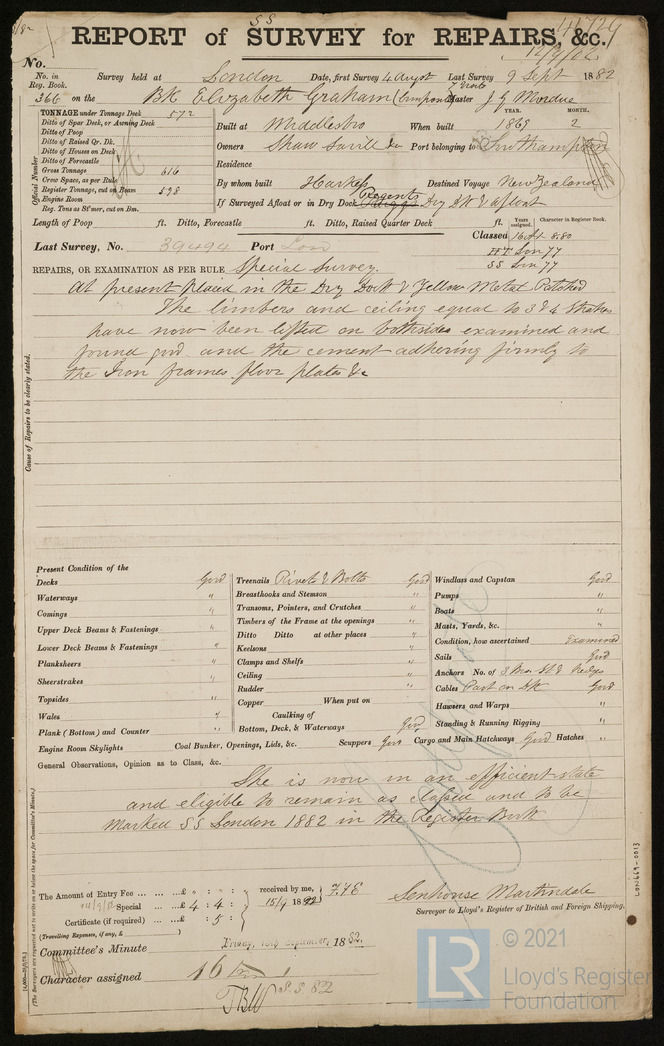 SS
REPORT OF SURVEY for REPAIRS, &c.
No.
No. in Reg. Book. Survey held at London Date, first Survey 4 August Last Survey 9 Sept 1882
7 Visits
366 on the BK Elizabeth Graham (Composite) Master J G Mordue
TONNAGE under Tonnage Deck 572
Ditto of Spar Deck, or Awning Deck
Ditto of Poop
Ditto of Raised Qr. Dk.
Ditto of Houses on Deck
Ditto of Forecastle
Gross Tonnage 616
Crew Space, as per Rule
Register Tonnage, cut on Beam 598
Engine Room
Reg. Tons as St'mer, cut on Bm.
Official Number
YEAR. MONTH.
Built at Middlesbro When built 1869 2
Owners Shaw Savill & Co Port belonging to Southampton
Residence
By whom built Harkess Destined Voyage New Zealand
Regents
If Surveyed Afloat or in Dry Dock Dry Dk & afloat
Length of Poop ft. Ditto, Forecastle ft. Ditto, Raised Quarter Deck ft.
Years assigned. Character in Register Book.
Classed 16 A1 8.80
HT Lon 77
SS Lon 77
Last Survey, No. 39494 Port Lon
REPAIRS, OR EXAMINATION AS PER RULE Special Survey.
At present placed in the Dry Dock & Yellow Metal Patched
The limbers and ceiling equal to 3 & 4 Strakes
have now been lifted on both sides examined and
found good and the cement adhering firmly to
the Iron frames floor plates &c
Cause of Repairs to be clearly stated.
Present Condition of the
Decks Good
Waterways "
Comings "
Upper Deck Beams & Fastenings "
Lower Deck Beams & Fastenings "
Planksheers "
Sheerstrakes "
Topsides "
Wales "
Plank (Bottom) and Counter "
Treenails Rivets & Bolts Good
Breasthooks and Stemson "
Transoms, Pointers, and Crutches "
Timbers of the Frame at the openings "
Ditto Ditto at other places "
Keelsons "
Clamps and Shelfs "
Ceiling "
Rudder "
Copper When put on
Caulking of
Bottom, Deck, & Waterways Good
Windlass and Capstan Good
Pumps "
Boats "
Masts, Yards, &c. "
Condition, how ascertained Examined
Sails Good
Anchors No. of 3 Bow St & Kedges
Cables Part on Dk Good
Hawsers and Warps "
Standing & Running Rigging "
Engine Room Skylights Coal Bunker, Openings, Lids, &c. Scuppers Good Cargo and Main Hatchways Good Hatches "
General Observations, Opinion as to Class, &c.
She is now in an efficient state
and eligible to remain as classed and to be
Marked SS London 1882 in the Register Book
The Amount of Entry Fee £ " : " : "
Special £ 4 : 4 :
Certificate (if required) : 5 :
received by me,
15/9 1882
(Travelling Expenses, if any, £ )
Senhouse Martindale
Surveyor to Lloyd's Register of British and Foreign Shipping.
Committee's Minute Friday, 15th September, 1882.
Character assigned 16
S.S. 82
(The Surveyors are requested not to write on or below the space for Committee's Minute.)
LON669-0013
LR
© 2021
Lloyd's Register
Foundation